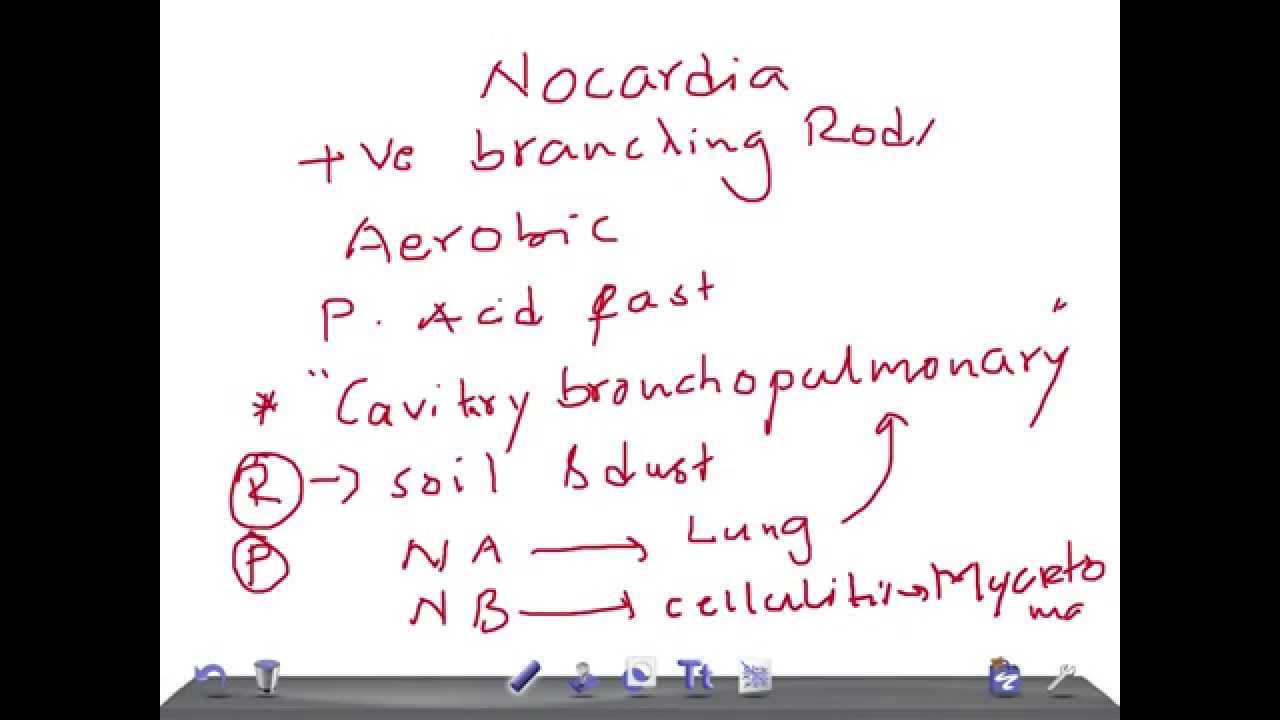 Nocardia
+ve branching Rods
Aerobic
P. Acid fast
* "Cavitary bronchopulmonary"
R → soil & dust
P NA → Lung
NB → cellulitis → Myceto
ma
Tt